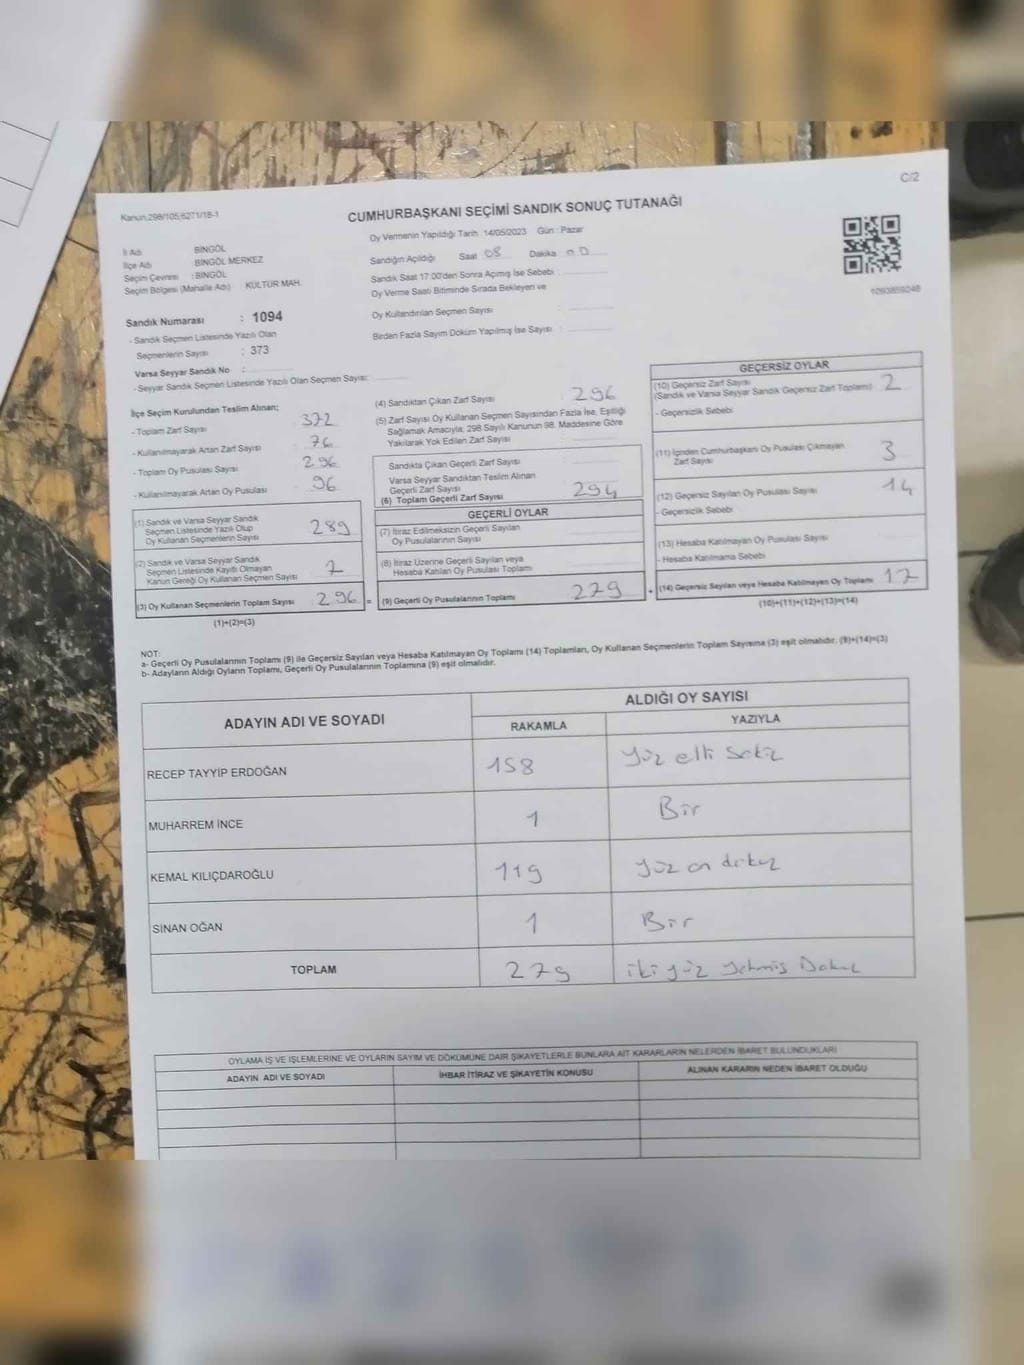 C/2
Kanun;298/105;6271/18-1
CUMHURBAŞKANI SEÇİMİ SANDIK SONUÇ TUTANAĞI
İl Adı : BİNGÖL
İlçe Adı : BİNGÖL MERKEZ
Seçim Çevresi : BİNGÖL
Seçim Bölgesi (Mahalle Adı) : KÜLTÜR MAH.
Oy Vermenin Yapıldığı Tarih 14/05/2023 Gün : Pazar
Sandığın Açıldığı Saat 08 Dakika 00
Sandık Saat 17:00'den Sonra Açımış İse Sebebi :
Oy Verme Saati Bitiminde Sırada Bekleyen ve
Oy Kullandırılan Seçmen Sayısı :
Birden Fazla Sayım Döküm Yapılmış İse Sayısı :
1093859248
Sandık Numarası : 1094
- Sandık Seçmen Listesinde Yazılı Olan
Seçmenlerin Sayısı : 373
Varsa Seyyar Sandık No :
- Seyyar Sandık Seçmen Listesinde Yazılı Olan Seçmen Sayısı:
İlçe Seçim Kurulundan Teslim Alınan;
- Toplam Zarf Sayısı : 372
- Kullanılmayarak Artan Zarf Sayısı : 76
- Toplam Oy Pusulası Sayısı : 296
- Kullanılmayarak Artan Oy Pusulası : 96
(1) Sandık ve Varsa Seyyar Sandık
Seçmen Listesinde Yazılı Olup
Oy Kullanan Seçmenlerin Sayısı 289
(2) Sandık ve Varsa Seyyar Sandık
Seçmen Listesinde Kayıtlı Olmayan
Kanun Gereği Oy Kullanan Seçmen Sayısı 7
(3) Oy Kullanan Seçmenlerin Toplam Sayısı 296 =
(1)+(2)=(3)
(4) Sandıktan Çıkan Zarf Sayısı : 296
(5) Zarf Sayısı Oy Kullanan Seçmen Sayısından Fazla İse, Eşitliği
Sağlamak Amacıyla; 298 Sayılı Kanunun 98. Maddesine Göre
Yakılarak Yok Edilen Zarf Sayısı :
Sandıkta Çıkan Geçerli Zarf Sayısı :
Varsa Seyyar Sandıktan Teslim Alınan
Geçerli Zarf Sayısı :
(6) Toplam Geçerli Zarf Sayısı 294
GEÇERLİ OYLAR
(7) İtiraz Edilmeksizin Geçerli Sayılan
Oy Pusulalarının Sayısı
(8) İtiraz Üzerine Geçerli Sayılan veya
Hesaba Katılan Oy Pusulası Toplamı
(9) Geçerli Oy Pusulalarının Toplamı 279 +
GEÇERSİZ OYLAR
(10) Geçersiz Zarf Sayısı
(Sandık ve Varsa Seyyar Sandık Geçersiz Zarf Toplamı) 2
- Geçersizlik Sebebi
(11) İçinden Cumhurbaşkanı Oy Pusulası Çıkmayan
Zarf Sayısı 3
(12) Geçersiz Sayılan Oy Pusulası Sayısı 14
- Geçersizlik Sebebi
(13) Hesaba Katılmayan Oy Pusulası Sayısı
- Hesaba Katılmama Sebebi
(14) Geçersiz Sayılan veya Hesaba Katılmayan Oy Toplamı 17
(10)+(11)+(12)+(13)=(14)
NOT:
a- Geçerli Oy Pusulalarının Toplamı (9) ile Geçersiz Sayılan veya Hesaba Katılmayan Oy Toplamı (14) Toplamları, Oy Kullanan Seçmenlerin Toplam Sayısına (3) eşit olmalıdır. (9)+(14)=(3)
b- Adayların Aldığı Oyların Toplamı, Geçerli Oy Pusulalarının Toplamına (9) eşit olmalıdır.
ADAYIN ADI VE SOYADI
ALDIĞI OY SAYISI
RAKAMLA YAZIYLA
RECEP TAYYİP ERDOĞAN 158 yüz elli sekiz
MUHARREM İNCE 1 Bir
KEMAL KILIÇDAROĞLU 119 yüz on dokuz
SİNAN OĞAN 1 Bir
TOPLAM 279 iki yüz yetmiş Dokuz
OYLAMA İŞ VE İŞLEMLERİNE VE OYLARIN SAYIM VE DÖKÜMÜNE DAİR ŞİKAYETLERLE BUNLARA AİT KARARLARIN NELERDEN İBARET BULUNDUKLARI
ADAYIN ADI VE SOYADI İHBAR İTİRAZ VE ŞİKAYETİN KONUSU ALINAN KARARIN NEDEN İBARET OLDUĞU